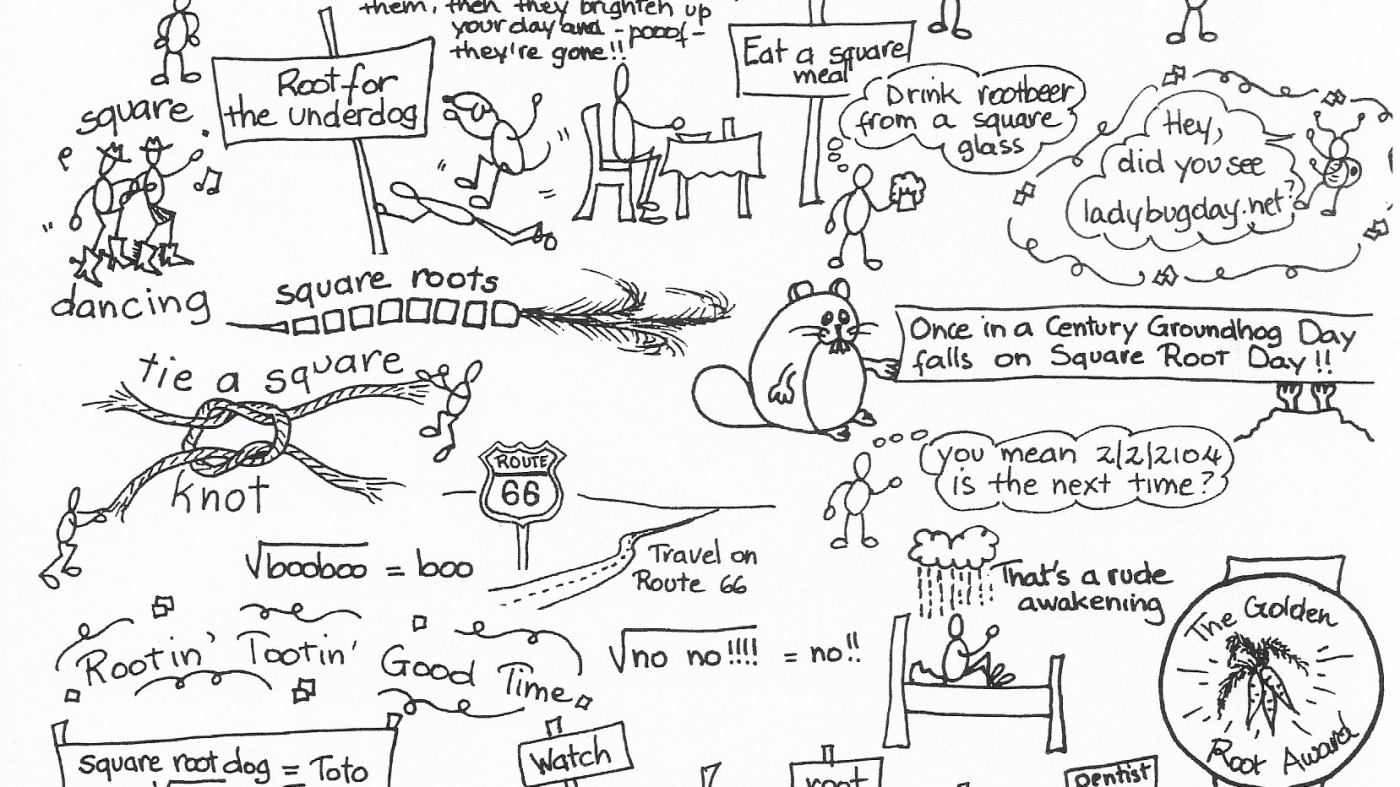 them, then they brighten up
your day and -pooof-
they're gone!!
Root for
the underdog
Eat a square
meal
Drink rootbeer
from a square
glass
Hey,
did you see
ladybugday.net?
square
dancing
square roots
Once in a Century Groundhog Day
falls on Square Root Day!!
tie a square
knot
ROUTE
66
you mean 2/2/2104
is the next time?
√booboo = boo
Travel on
Route 66
That's a rude
awakening
The Golden
Root Award
Rootin' Tootin' Good Time
√no no!!!! = no!!
square root dog = Toto
Watch
root
Dentist